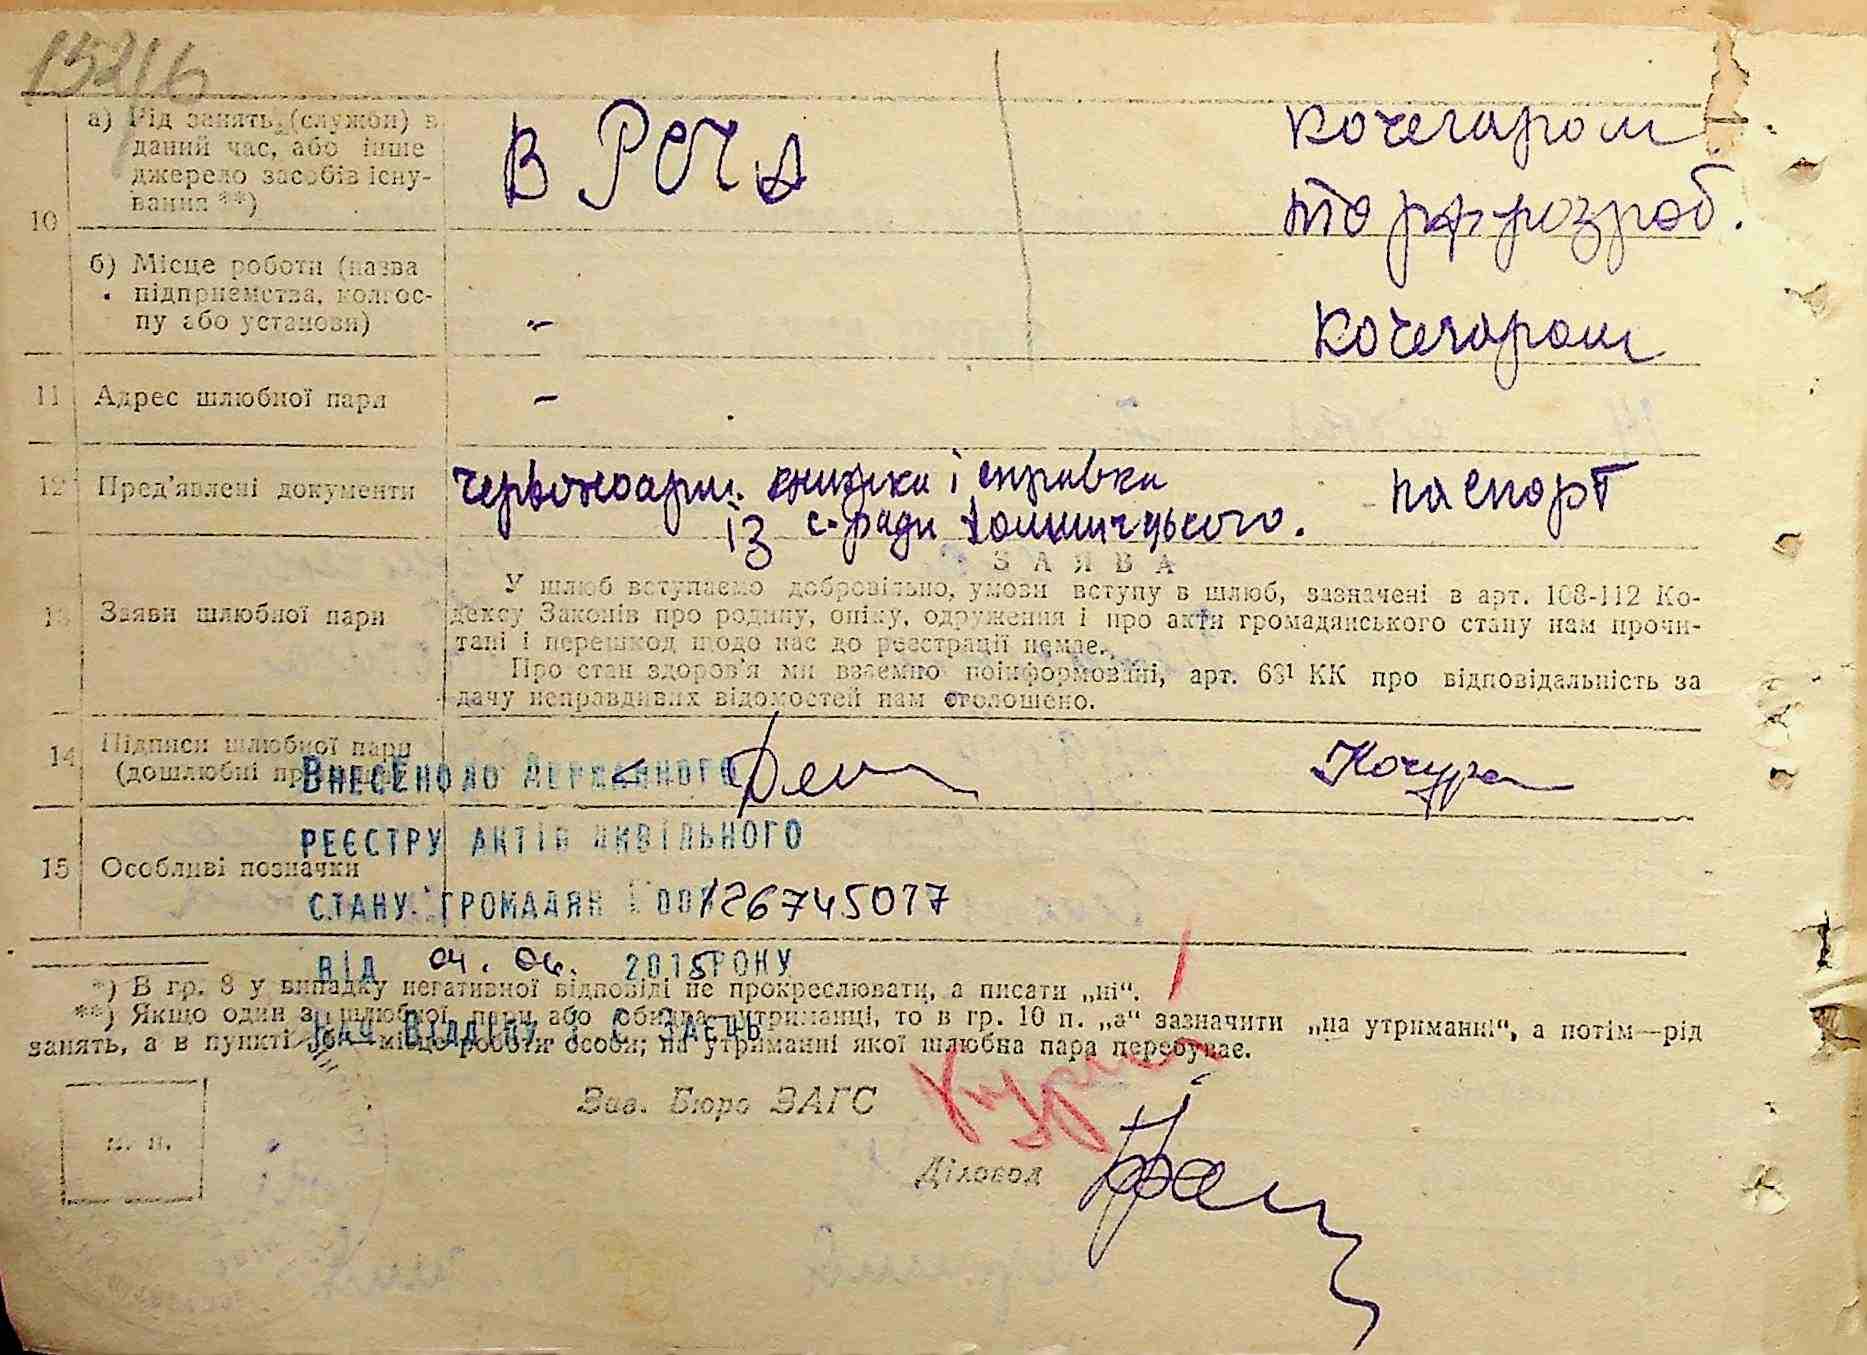 15216
10
а) Рід занять (служби) в
даний час, або інше
джерело засобів існу-
вання **)
В РСЧА
кочегаром
торфрозроб.
б) Місце роботи (назва
підприємства, колгос-
пу або установи)
"
кочегаром
11 Адрес шлюбної пари
-
12 Пред'явлені документи
червоноарм. книжка і справка
із с-ради
паспорт
13 Заяви шлюбної пари
ЗАЯВА
У шлюб вступаємо добровільно, умови вступу в шлюб, зазначені в арт. 108-112 Ко-
дексу Законів про родину, опіку, одруження і про акти громадянського стану нам прочи-
тані і перешкод щодо нас до реєстрації немає.
Про стан здоров'я ми взаємно поінформовані, арт. 68¹ КК про відповідальність за
дачу неправдивих відомостей нам оголошено.
14 Підписи шлюбної пари
(дошлюбні
Кочура
Внесено до Державного
реєстру актів цивільного
15 Особливі позначки
стану громадян 00126745017
від 04. 06. 2015 року
*) В гр. 8 у випадку негативної відповіді не прокреслювати, а писати „ні“.
**) Якщо один з шлюбної пари або обидва утриманці, то в гр. 10 п. „а“ зазначити „на утриманні“, а потім—рід
нач. відділу І. С. Заєць
занять, а в пункті „б“—місце роботи особи, на утриманні якої шлюбна пара перебуває.
Зав. Бюро ЗАГС
м. п.
Діловод